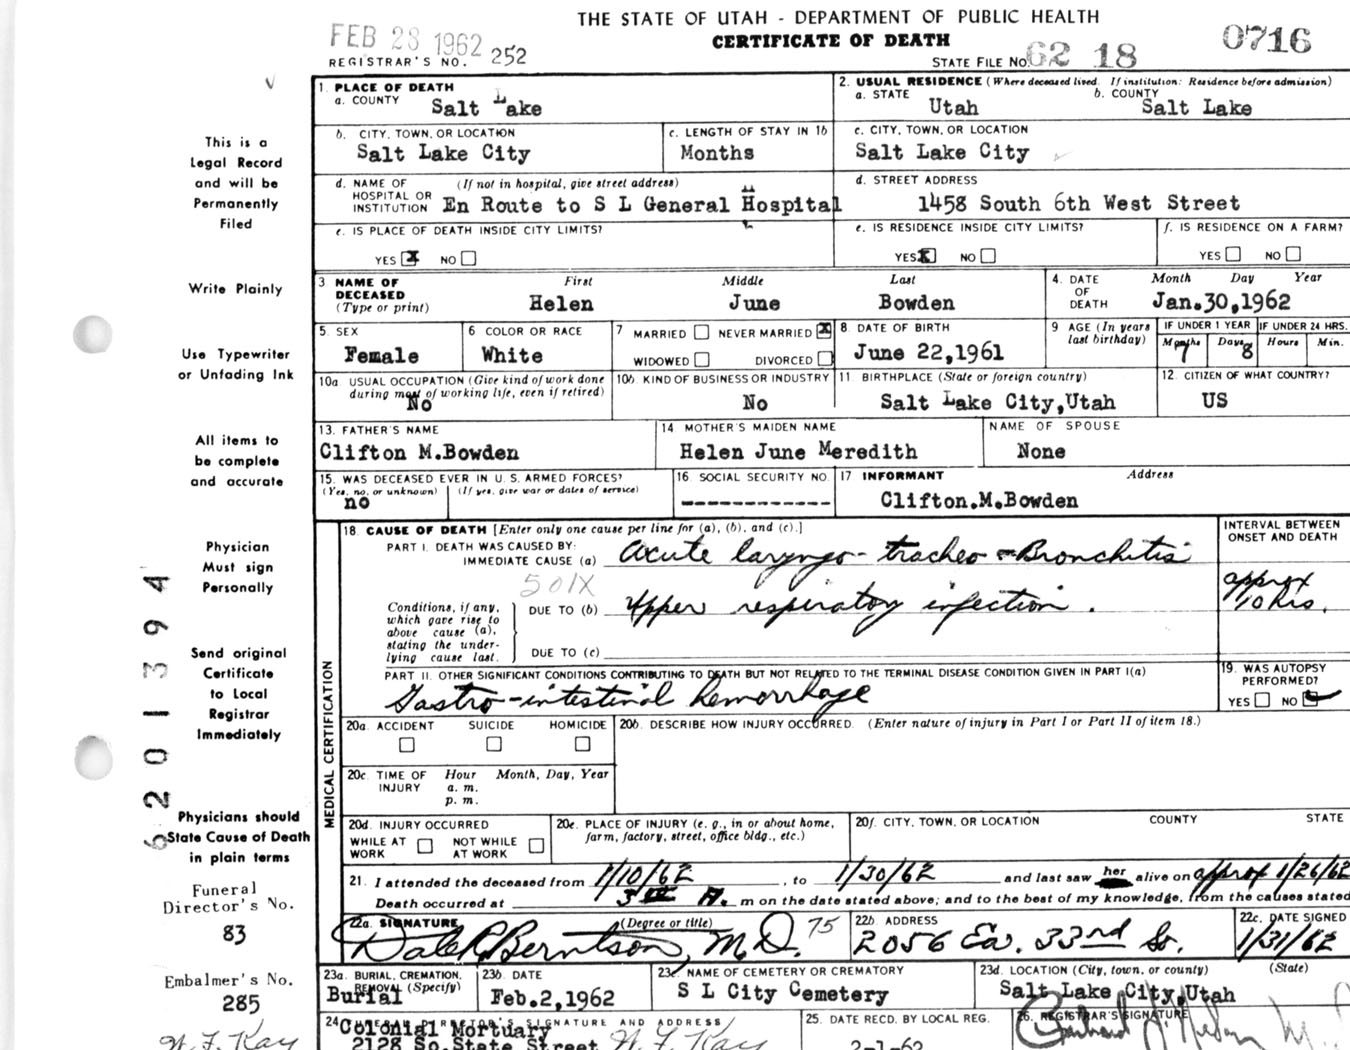 THE STATE OF UTAH - DEPARTMENT OF PUBLIC HEALTH
CERTIFICATE OF DEATH
FEB 23 1962
REGISTRAR'S NO. 252
STATE FILE NO. 62 18 0716
1. PLACE OF DEATH
a. COUNTY Salt Lake
2. USUAL RESIDENCE (Where deceased lived. If institution: Residence before admission)
a. STATE Utah b. COUNTY Salt Lake
b. CITY, TOWN, OR LOCATION Salt Lake City
c. LENGTH OF STAY IN 1b Months
c. CITY, TOWN, OR LOCATION Salt Lake City
d. NAME OF HOSPITAL OR INSTITUTION (If not in hospital, give street address) En Route to S L General Hospital
d. STREET ADDRESS 1458 South 6th West Street
e. IS PLACE OF DEATH INSIDE CITY LIMITS?
YES X NO
e. IS RESIDENCE INSIDE CITY LIMITS?
YES X NO
f. IS RESIDENCE ON A FARM?
YES NO
3 NAME OF DECEASED (Type or print) First Middle Last
Helen June Bowden
4. DATE OF DEATH Month Day Year
Jan.30,1962
5. SEX Female
6 COLOR OR RACE White
7 MARRIED NEVER MARRIED X
WIDOWED DIVORCED
8. DATE OF BIRTH June 22,1961
9 AGE (In years last birthday)
IF UNDER 1 YEAR Months 7 Days 8
IF UNDER 24 HRS. Hours Min.
10a. USUAL OCCUPATION (Give kind of work done during most of working life, even if retired) No
10b. KIND OF BUSINESS OR INDUSTRY No
11. BIRTHPLACE (State or foreign country) Salt Lake City,Utah
12. CITIZEN OF WHAT COUNTRY? US
13. FATHER'S NAME Clifton M.Bowden
14 MOTHER'S MAIDEN NAME Helen June Meredith
NAME OF SPOUSE None
15. WAS DECEASED EVER IN U. S. ARMED FORCES?
(Yes, no, or unknown) (If yes, give war or dates of service)
no
16. SOCIAL SECURITY NO. --------------
17 INFORMANT Address
Clifton.M.Bowden
18. CAUSE OF DEATH [Enter only one cause per line for (a), (b), and (c).]
INTERVAL BETWEEN ONSET AND DEATH
PART I. DEATH WAS CAUSED BY:
IMMEDIATE CAUSE (a) Acute laryngo-tracheo-Bronchitis
501X
approx 10 hrs.
Conditions, if any, which gave rise to above cause (a), stating the underlying cause last.
DUE TO (b) Upper respiratory infection.
DUE TO (c)
PART II. OTHER SIGNIFICANT CONDITIONS CONTRIBUTING TO DEATH BUT NOT RELATED TO THE TERMINAL DISEASE CONDITION GIVEN IN PART I(a)
Gastro-intestinal hemorrhage
19. WAS AUTOPSY PERFORMED?
YES NO
20a. ACCIDENT SUICIDE HOMICIDE
20b. DESCRIBE HOW INJURY OCCURRED. (Enter nature of injury in Part I or Part II of item 18.)
20c. TIME OF INJURY Hour Month, Day, Year
a. m.
p. m.
20d. INJURY OCCURRED
WHILE AT WORK NOT WHILE AT WORK
20e. PLACE OF INJURY (e. g., in or about home, farm, factory, street, office bldg., etc.)
20f. CITY, TOWN, OR LOCATION COUNTY STATE
21. I attended the deceased from 1/10/62, to 1/30/62 and last saw her alive on approx 1/26/62
Death occurred at A. m on the date stated above; and to the best of my knowledge, from the causes stated
22a. SIGNATURE (Degree or title)
Dale G. Berntson, M.D. 75
22b. ADDRESS 2056 Ea. 33rd So.
22c. DATE SIGNED 1/31/62
23a. BURIAL, CREMATION, REMOVAL (Specify) Burial
23b. DATE Feb.2,1962
23c. NAME OF CEMETERY OR CREMATORY S L City Cemetery
23d. LOCATION (City, town, or county) (State)
Salt Lake City,Utah
24 SIGNATURE AND ADDRESS
Colonial Mortuary
2128 So.State Street W. F. Kay
25. DATE RECD. BY LOCAL REG.
2-1-62
26. REGISTRAR'S SIGNATURE
MEDICAL CERTIFICATION
This is a
Legal Record
and will be
Permanently
Filed
Write Plainly
Use Typewriter
or Unfading Ink
All items to
be complete
and accurate
Physician
Must sign
Personally
Send original
Certificate
to Local
Registrar
Immediately
Physicians should
State Cause of Death
in plain terms
Funeral
Director's No.
83
Embalmer's No.
285
W. F. Kay
6201394